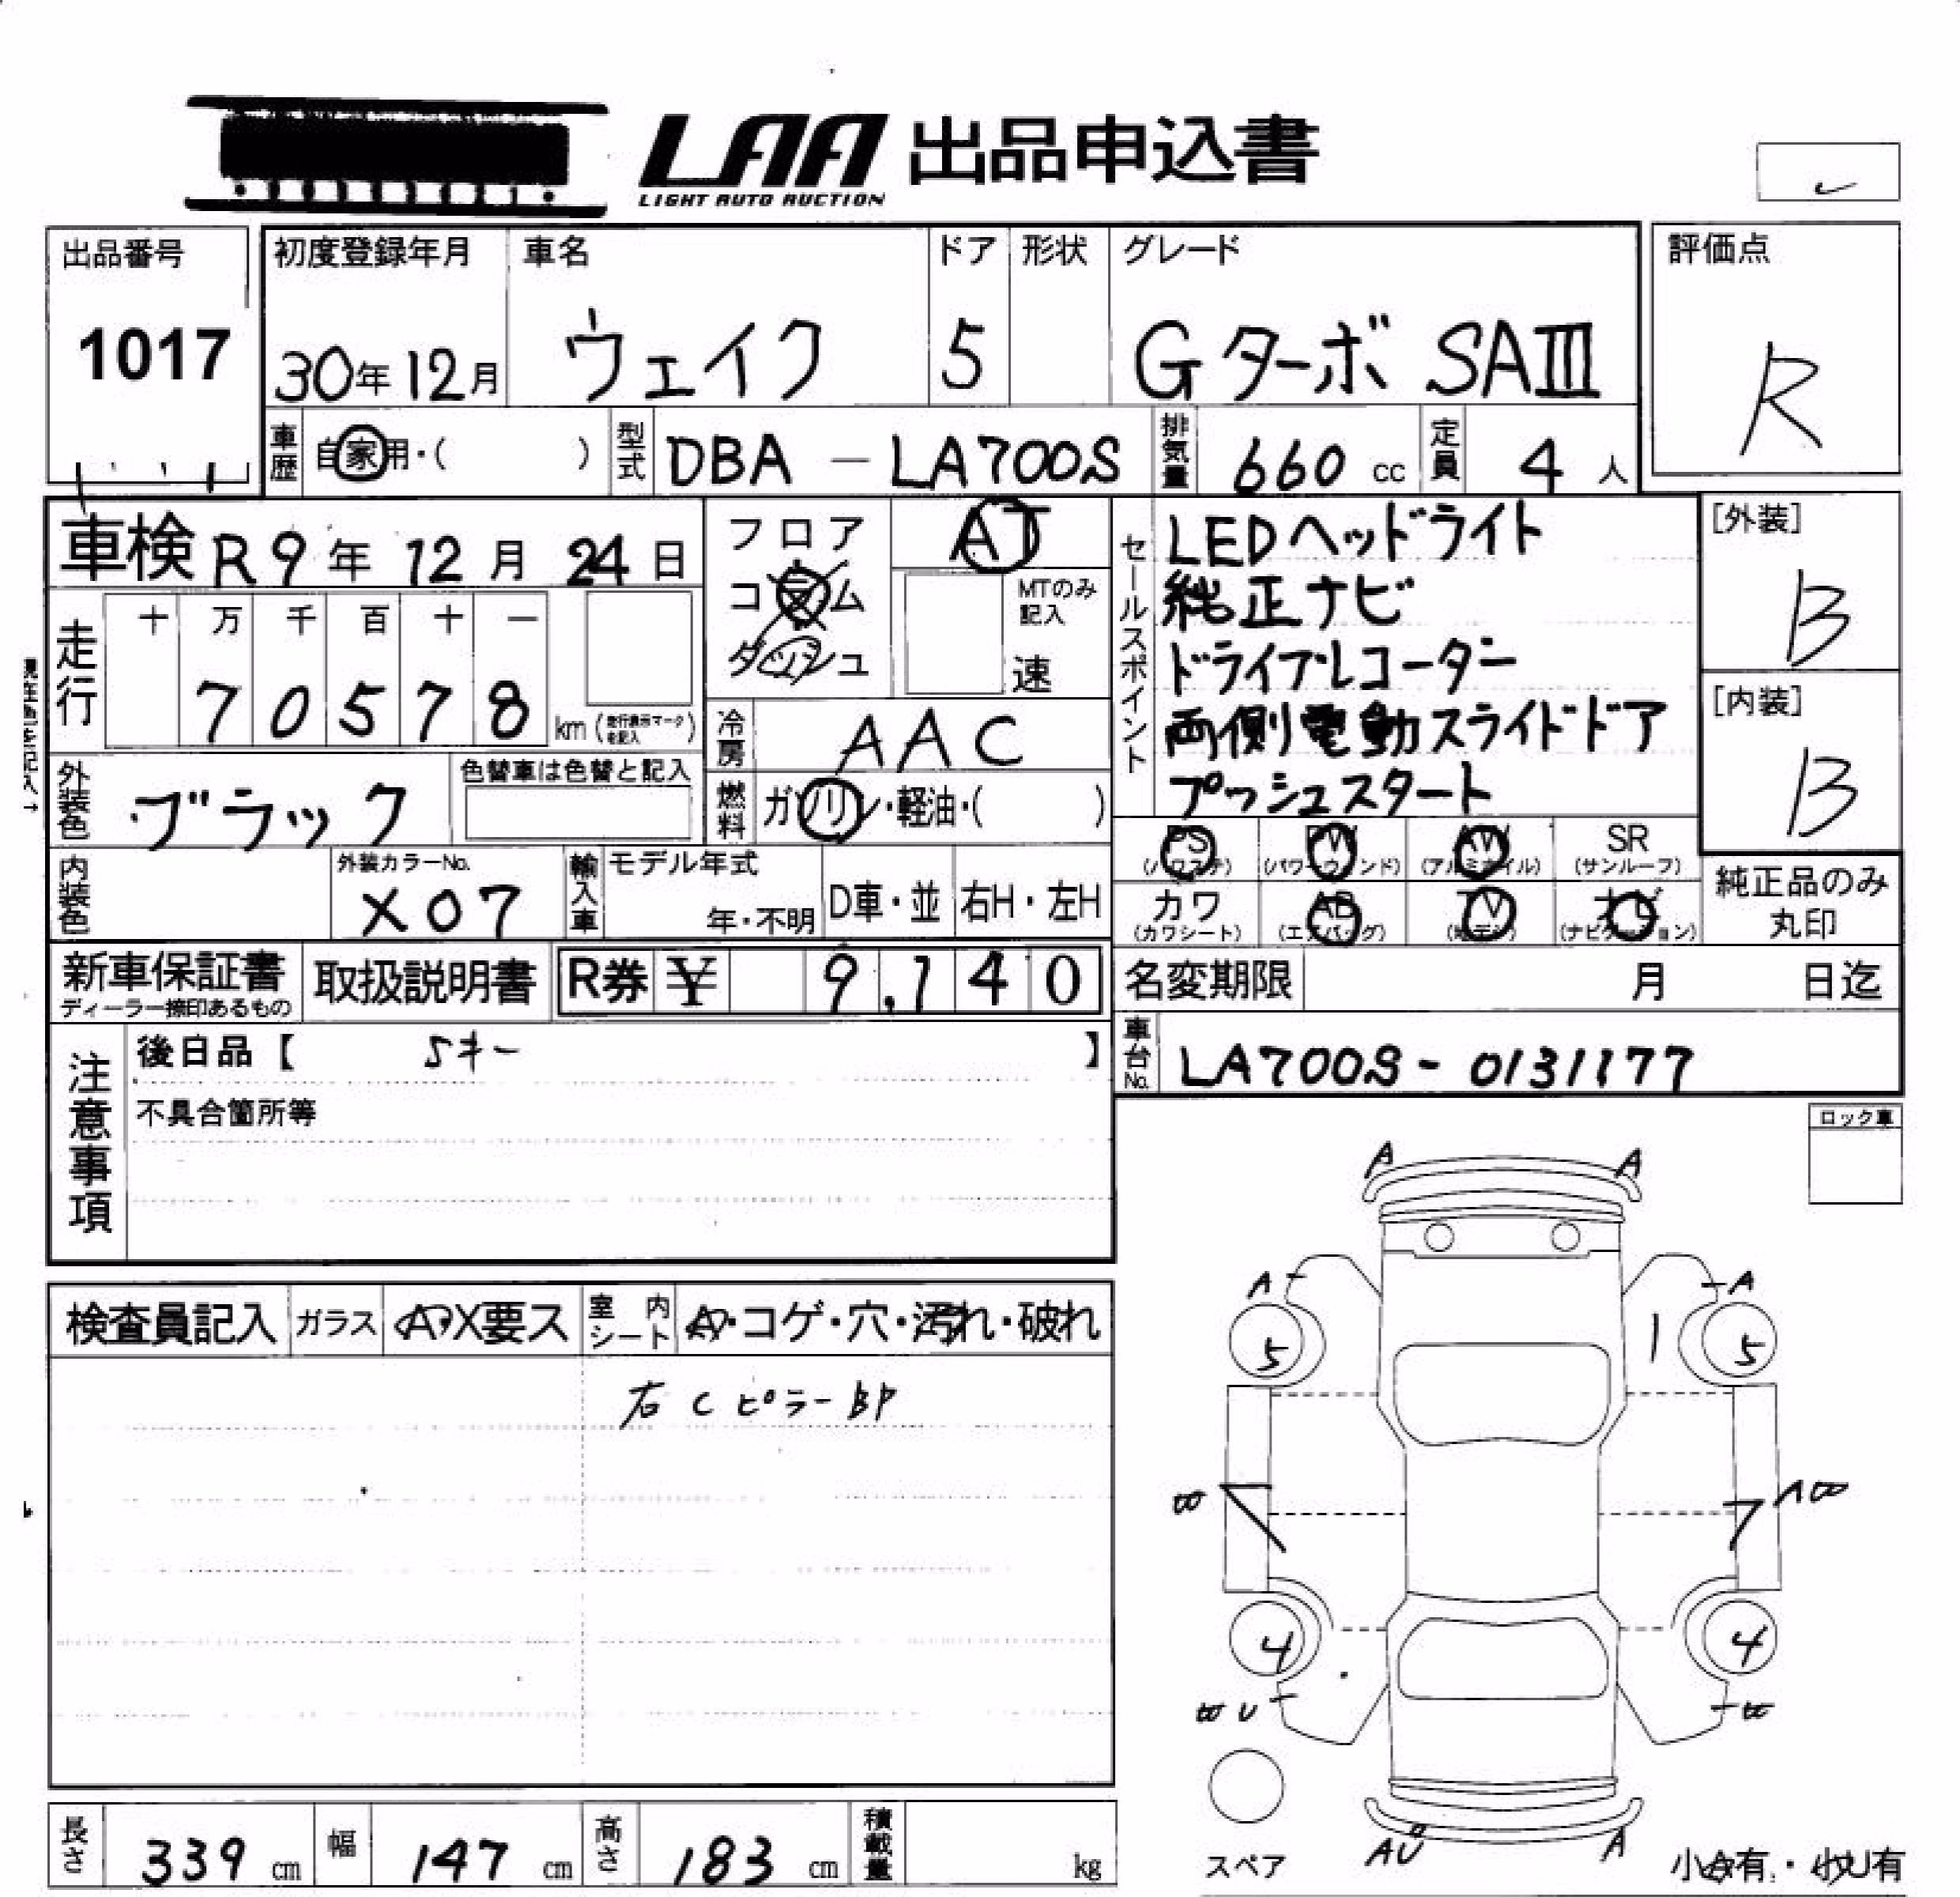 LAA 出品申込書
LIGHT AUTO AUCTION
出品番号
1017
初度登録年月
30年12月
車名
ウェイク
ドア
5
形状
グレード
Gターボ SAIII
評価点
R
車歴
自家用・( )
型式
DBA - LA700S
排気量
660 cc
定員
4 人
車検 R9年 12月 24日
フロア
コラム
ダッシュ
AT
MTのみ記入
速
セールスポイント
LEDヘッドライト
純正ナビ
ドライブレコーダー
両側電動スライドドア
プッシュスタート
[外装]
B
[内装]
B
走行
十 万 千 百 十 一
7 0 5 7 8 km (走行表示マークを記入)
冷房
AAC
外装色
ブラック
色替車は色替と記入
燃料
ガソリン・軽油・( )
PS
(パワステ)
PW
(パワーウィンド)
AW
(アルミホイル)
SR
(サンルーフ)
カワ
(カワシート)
AB
(エアバッグ)
TV
(地デジ)
ナビ
(ナビゲーション)
純正品のみ
丸印
内装色
外装カラーNo.
X07
輸入車
モデル年式
年・不明
D車・並
右H・左H
新車保証書
ディーラー捺印あるもの
取扱説明書
R券 ¥ 9,140
名変期限 月 日迄
車台No.
LA700S - 0131177
注意事項
後日品【 Sキー 】
不具合箇所等
ロック車
検査員記入
ガラス
A・X要ス
室内シート
A・コゲ・穴・汚れ・破れ
右Cピラー BP
A A
A A
5 1 5
4 4
U
スペア
AU A
小A有・小U有
長さ
339 cm
幅
147 cm
高さ
183 cm
積載量
kg